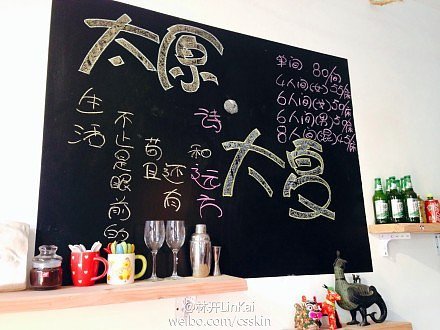 太原·大夏
单间 80/间
4人间(女)55/床
6人间(女)50/床
6人间(男)50/床
8人间(混)45/床
生活
不止是眼前的
苟且还有
诗和远方
@林开LinKai
weibo.com/csskin